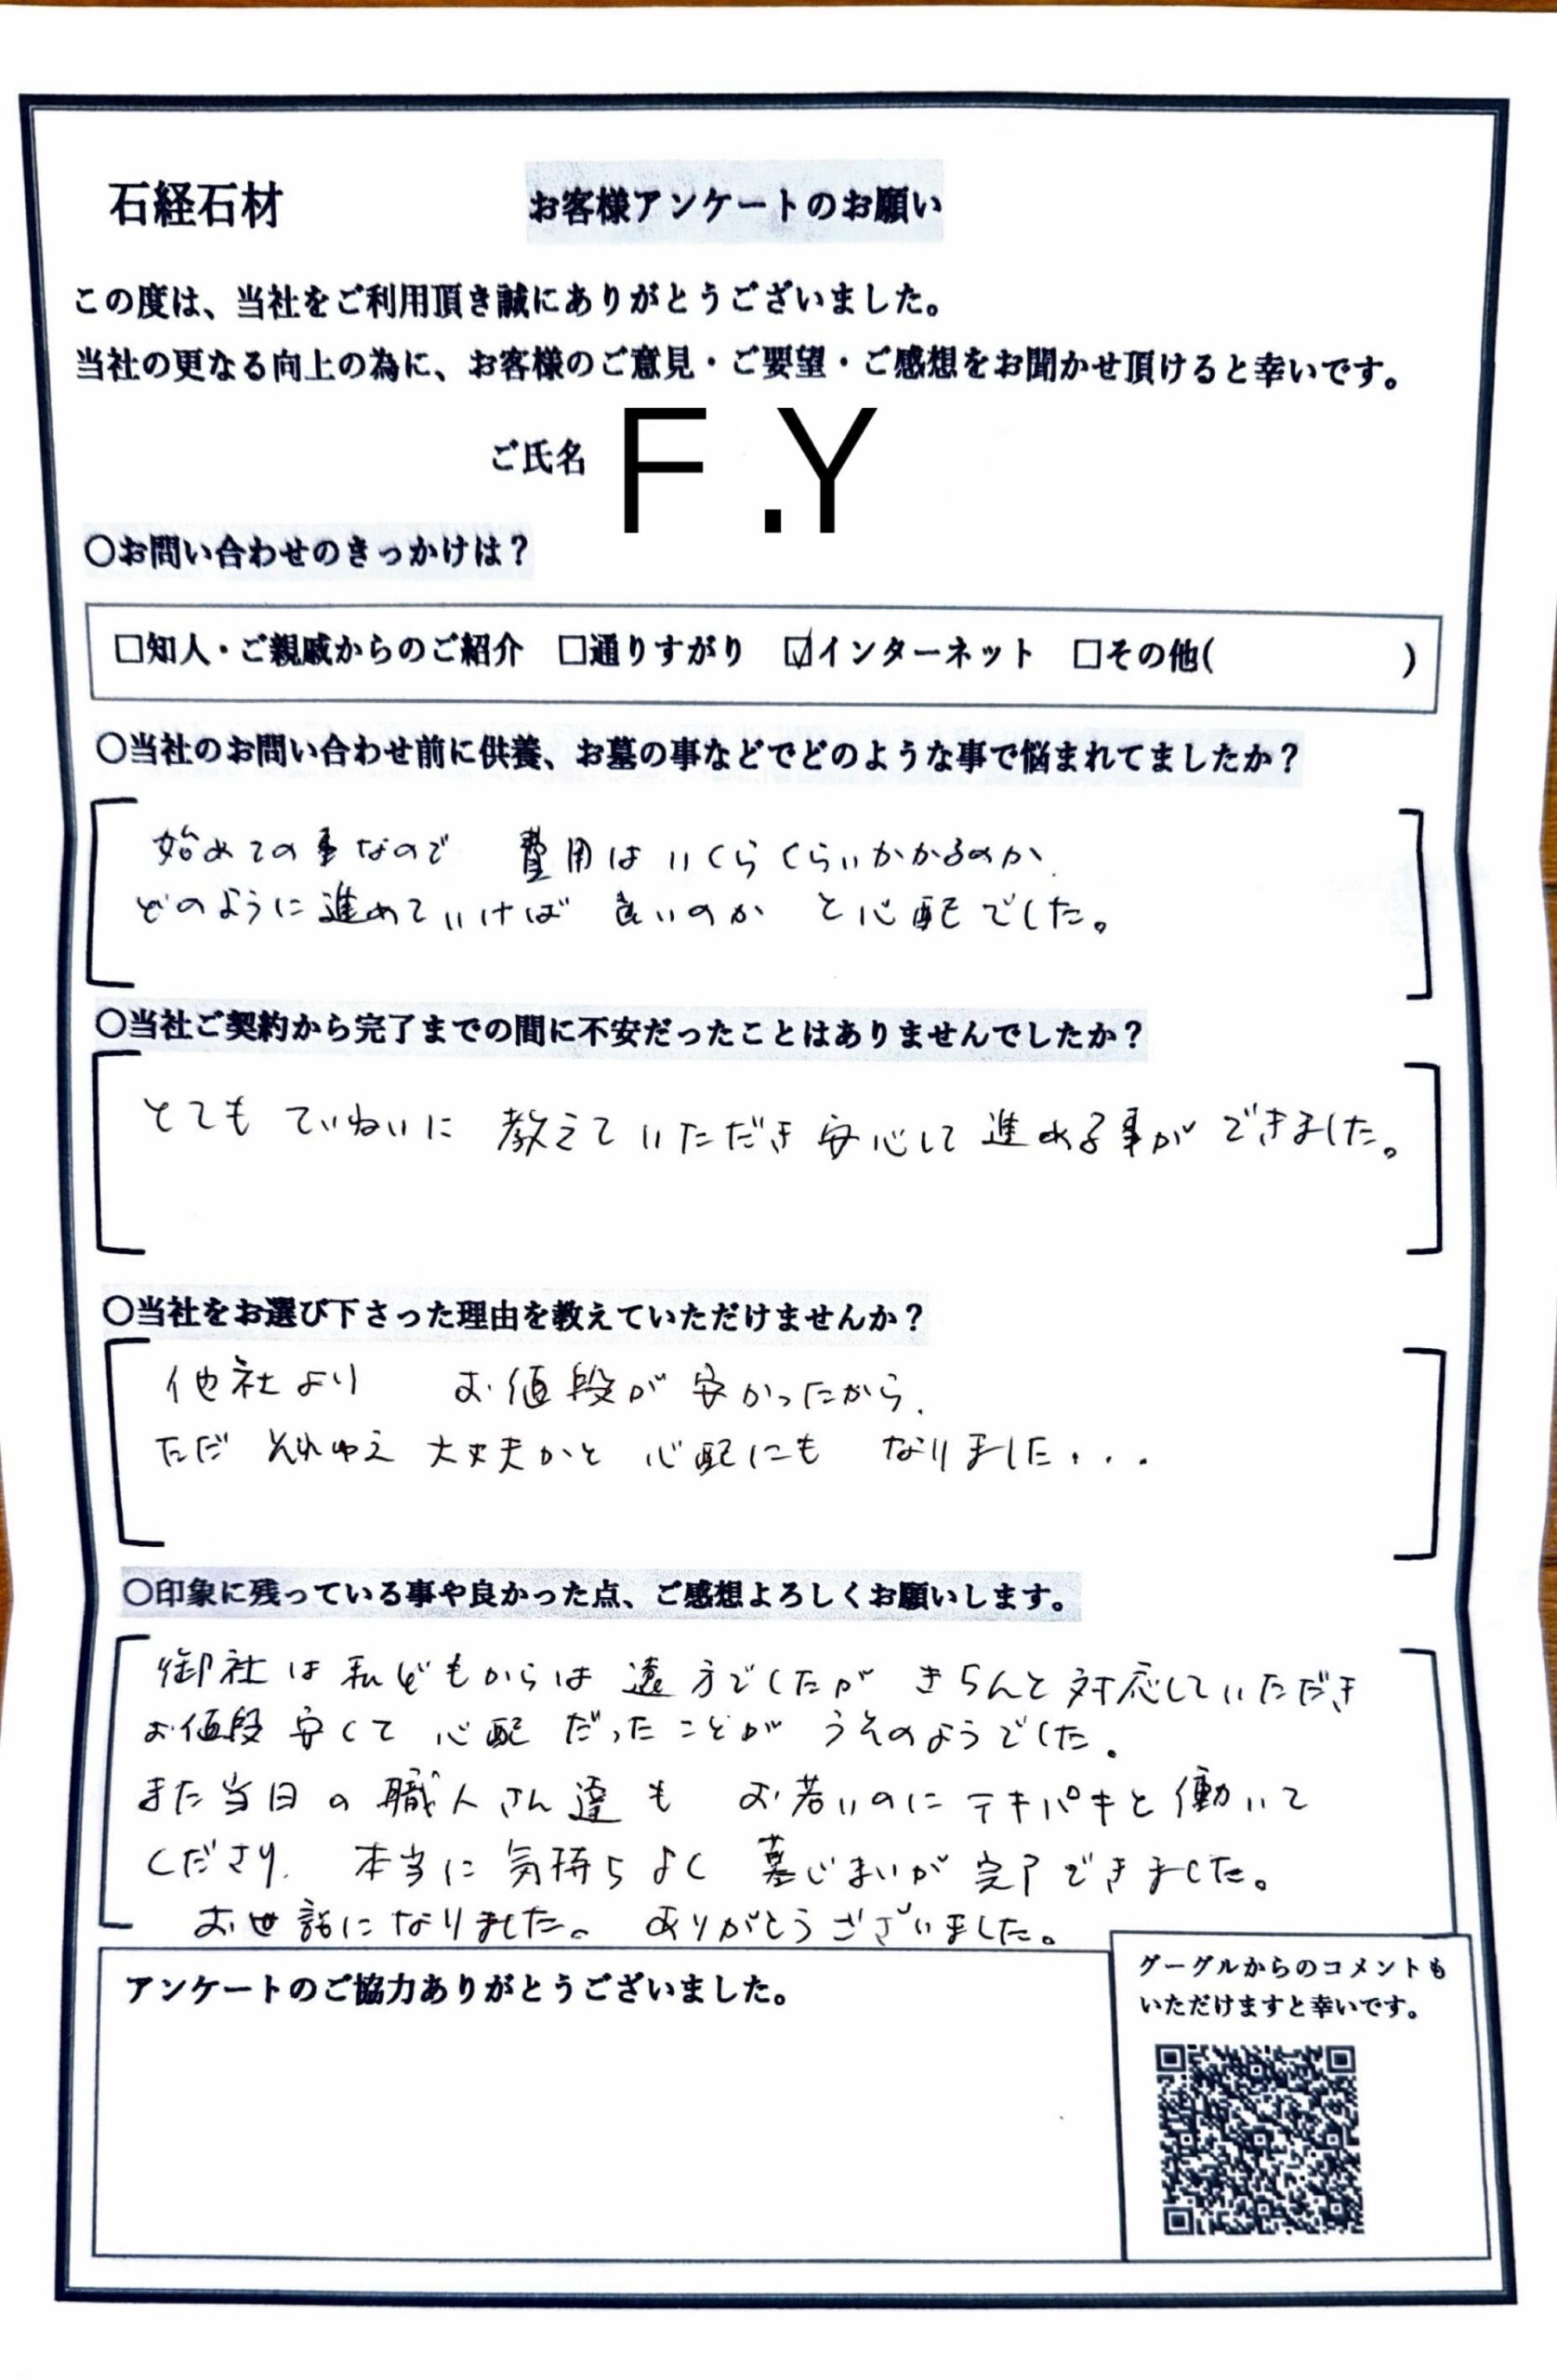 石経石材　お客様アンケートのお願い
この度は、当社をご利用頂き誠にありがとうございました。
当社の更なる向上の為に、お客様のご意見・ご要望・ご感想をお聞かせ頂けると幸いです。
ご氏名 F.Y
○お問い合わせのきっかけは？
□知人・ご親戚からのご紹介 □通りすがり ☑インターネット □その他( )
○当社のお問い合わせ前に供養、お墓の事などでどのような事で悩まれてましたか？
始めての事なので 費用はいくらくらいかかるのか、
どのように進めていけば 良いのか と心配でした。
○当社ご契約から完了までの間に不安だったことはありませんでしたか？
とても ていねいに 教えていただき 安心して 進める事が できました。
○当社をお選び下さった理由を教えていただけませんか？
他社より お値段が 安かったから、
ただ それゆえ 大丈夫かと 心配にも なりました・・・
○印象に残っている事や良かった点、ご感想よろしくお願いします。
御社は 私どもからは 遠方でしたが きちんと 対応していただき
お値段 安くて 心配 だったことが うそのようでした。
また当日の 職人さん達も お若いのに テキパキと 働いて
くださり、本当に 気持ちよく 墓じまいが 完了できました。
お世話になりました。 ありがとうございました。
アンケートのご協力ありがとうございました。
グーグルからのコメントも
いただけますと幸いです。